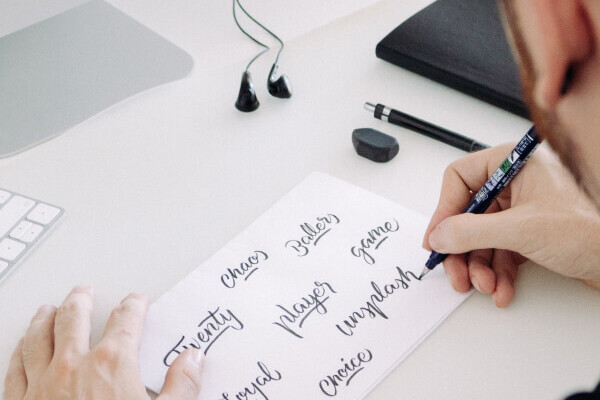 chaos Ballers game
Twenty player unsplash
loyal choice